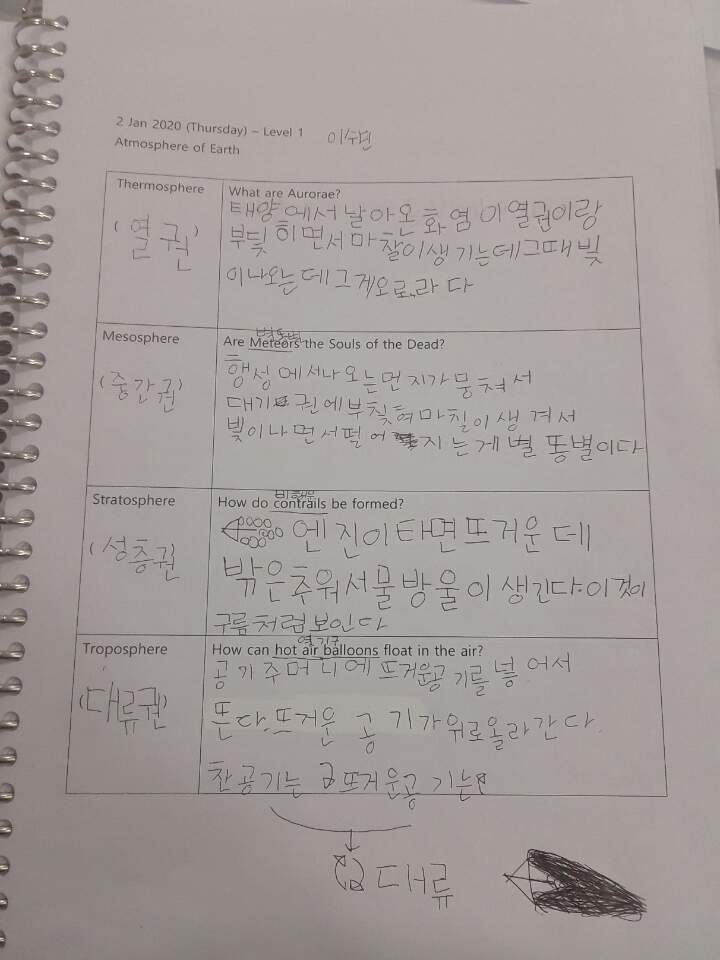 2 Jan 2020 (Thursday) – Level 1
Atmosphere of Earth
Thermosphere
(열권)
What are Aurorae?
태양에서 날아온 화염이 열권이랑
부딪히면서 마찰이 생기는데 그때 빛
이 나오는데 그게 오로라다
Mesosphere
(중간권)
별똥별
Are Meteors the Souls of the Dead?
행성에서 나오는 먼지가 뭉쳐서
대기권에 부칮혀 마칠이 생겨서
빛이 나면서 떨어지는게 별똥별이다
Stratosphere
(성층권
비행운
How do contrails be formed?
엔진이 타면 뜨거운데
밖은 추워서 물방울이 생긴다. 이것이
구름처럼 보인다
Troposphere
(대류권)
열기구
How can hot air balloons float in the air?
공기주머니에 뜨거운공기를 넣어서
뜬다. 뜨거운 공기가 위로 올라간다.
찬공기는 뜨거운공기는
대류